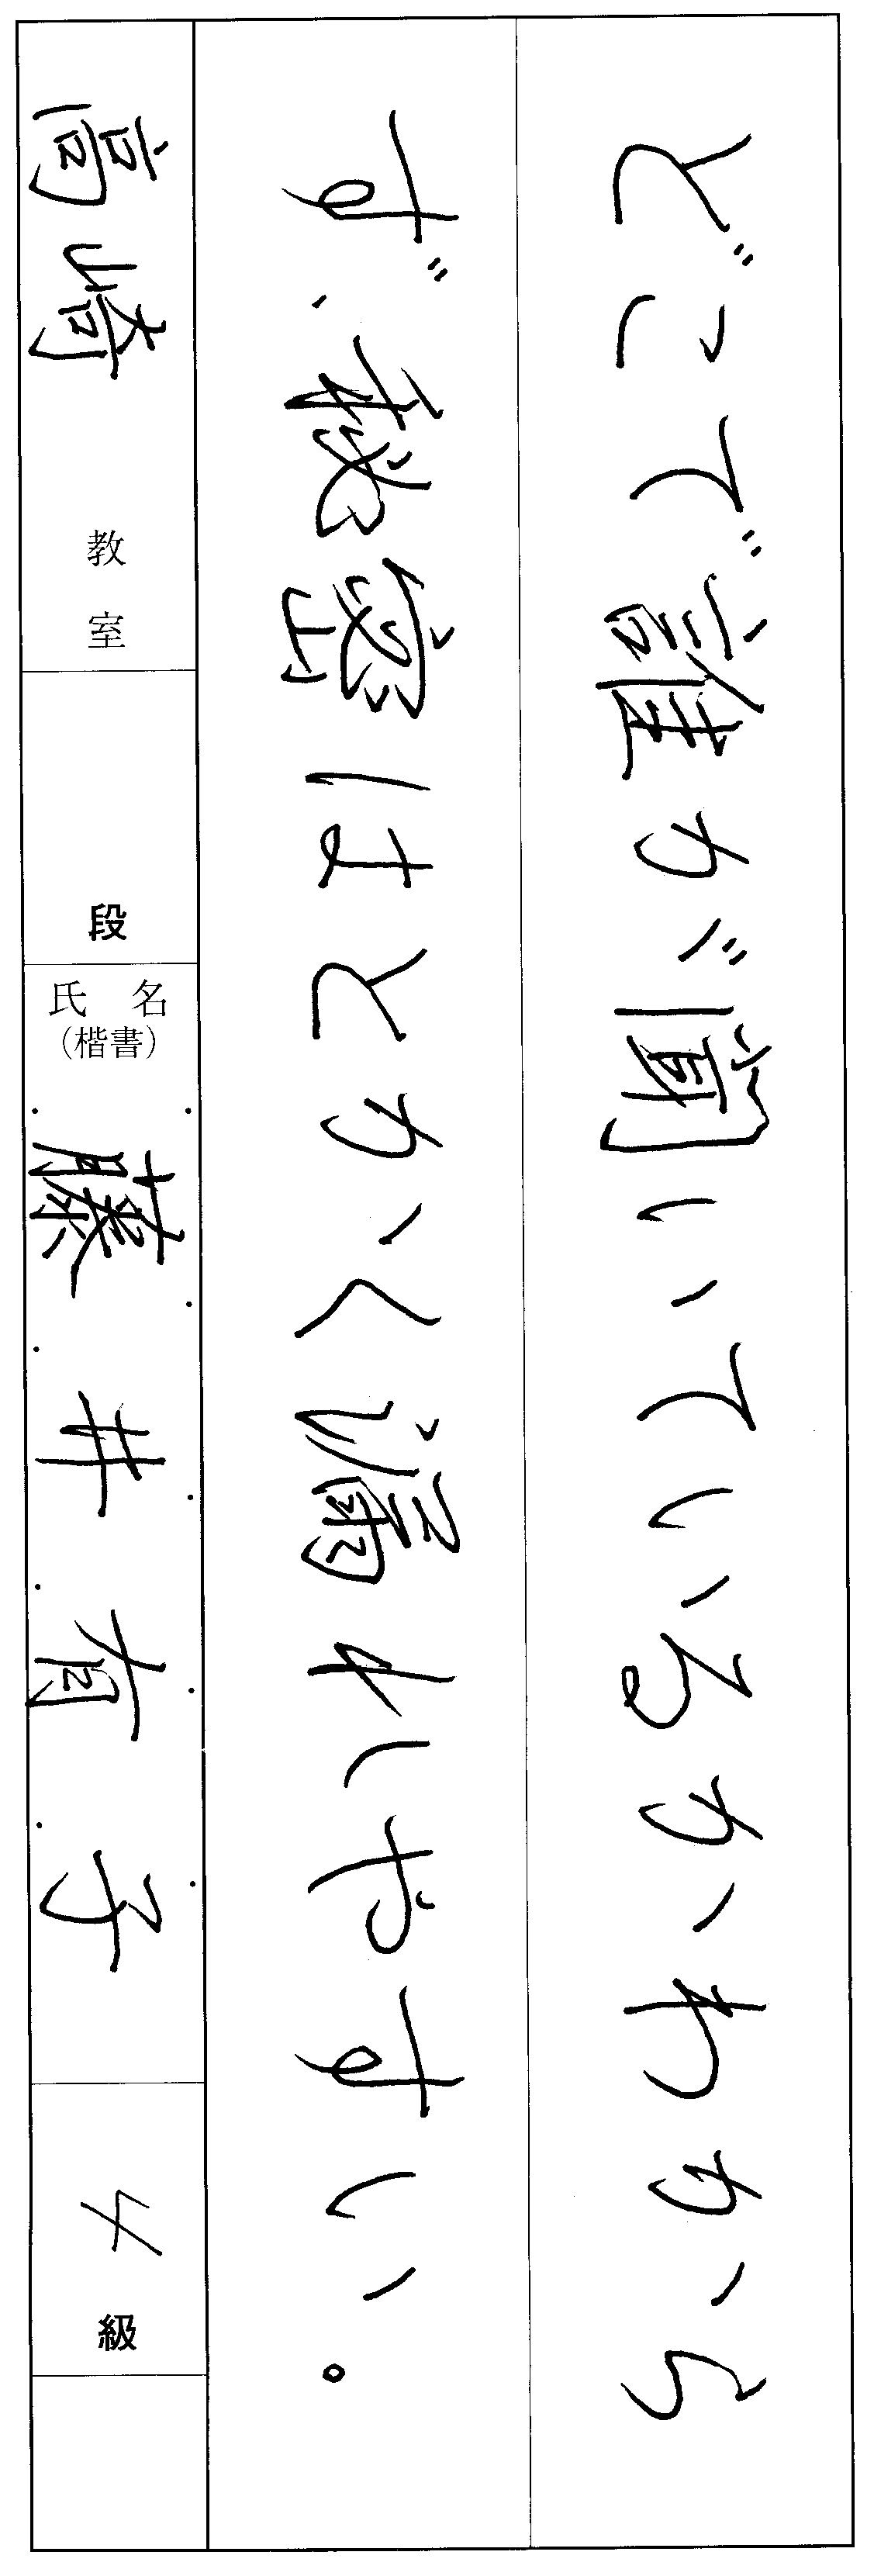 どこで誰が聞いているかわから
ず、秘密はとかく漏れやすい。
高崎 教室 段 氏名(楷書) 藤井有子 4級